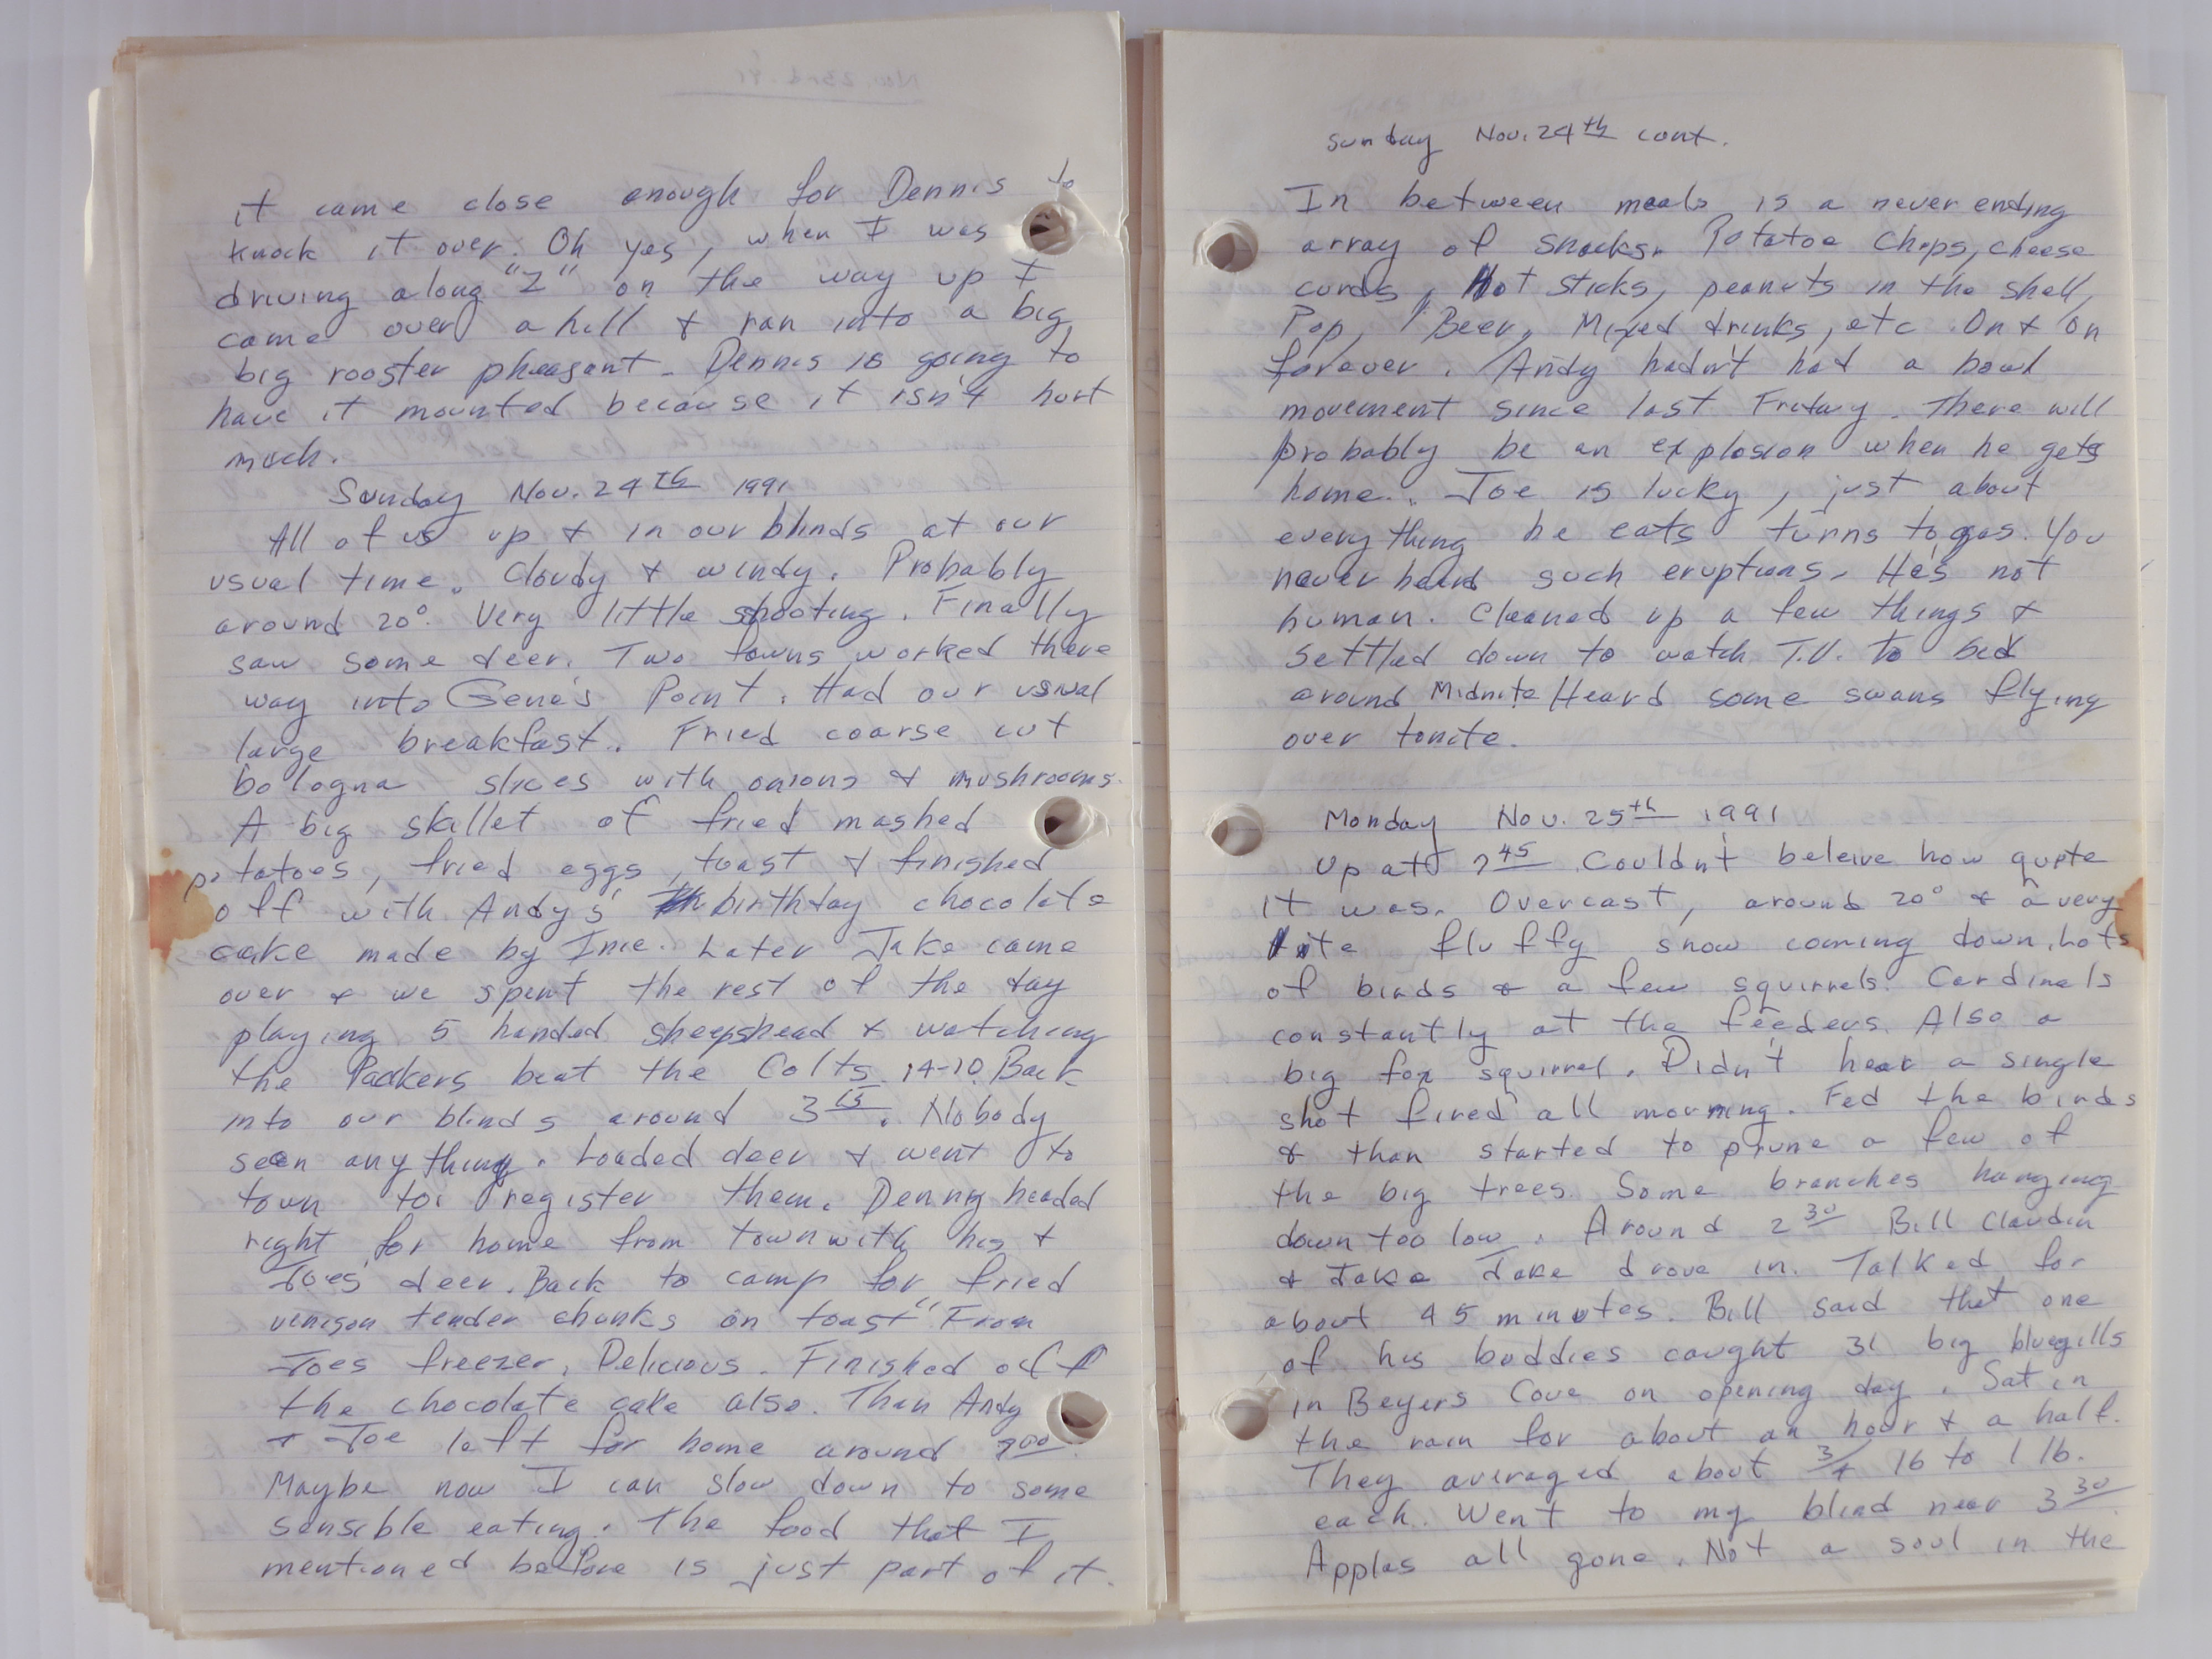 it came close enough for Dennis to
knock it over. Oh yes, when I was
driving along "Z" on the way up I
came over a hill & ran into a big
big rooster pheasant. Dennis is going to
have it mounted because it isn't hurt
much.
Sunday Nov. 24th 1991
All of us up & in our blinds at our
usual time. Cloudy & windy. Probably
around 20°. Very little shooting. Finally
saw some deer. Two fawns worked there
way into Gene's Point. Had our usual
large breakfast. Fried coarse cut
bologna slices with onions & mushrooms.
A big skillet of fried mashed
potatoes, fried eggs, toast & finished
off with Andy's birthday chocolate
cake made by Inie. Later Jake came
over & we spent the rest of the day
playing 5 handed sheepshead & watching
the Packers beat the Colts 14-10. Back
into our blinds around 3 15. Nobody
seen anything. Loaded deer & went to
town to register them. Denny headed
right for home from town with his &
Joes' deer. Back to camp for fried
venison tender chunks on toast" From
Joes freezer. Delicious. Finished off
the chocolate cake also. Than Andy
& Joe left for home around 900
Maybe now I can slow down to some
sensible eating. The food that I
mentioned before is just part of it.
Sunday Nov. 24th cont.
In between meals is a never ending
array of snacks. Potatoe Chips, cheese
curds, Hot sticks, peanuts in the shell,
Pop, Beer, Mixed drinks, etc. On & On
forever. Andy hadn't had a bowl
movement since last Friday. There will
probably be an explosion when he gets
home. Joe is lucky, just about
everything he eats turns to gas. You
never heard such eruptions. He's not
human. Cleaned up a few things &
settled down to watch T.V. to bed
around Midnite Heard some swans flying
over tonite.
Monday Nov. 25th 1991
Up at 7 45 Couldn't beleive how quite
it was. Overcast, around 20° & a very
lite fluffy snow coming down. Lots
of birds & a few squirrels. Cardinals
constantly at the feeders. Also a
big fox squirrel. Didn't hear a single
shot fired all morning. Fed the birds
& than started to prune a few of
the big trees. Some branches hanging
down too low. Around 2 30 Bill Claudin
& Jake Jake drove in. Talked for
about 45 minutes. Bill said that one
of his buddies caught 31 big bluegills
in Beyers Cove on opening day. Sat in
the rain for about an hour & a half.
They averaged about 3/4 lb to 1 lb.
each. Went to my blind near 3 30
Apples all gone. Not a soul in the